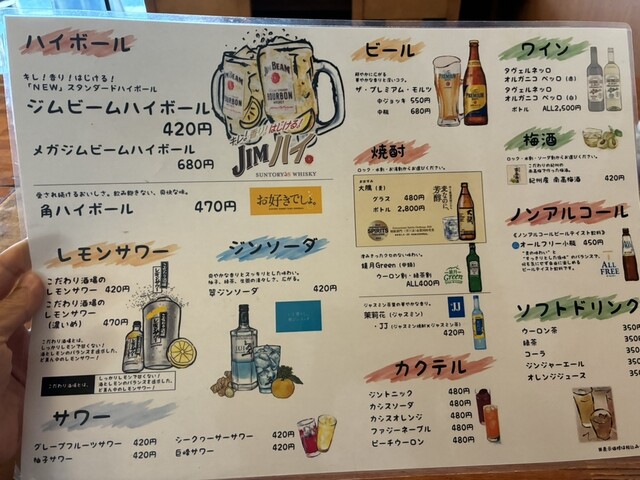 ハイボール
キレ！香り！はじける！
「NEW」スタンダードハイボール
ジムビームハイボール
420円
メガジムビームハイボール
680円
JIM BEAM
BOURBON
キレ！香り！はじける！
JIMハイ。
SUNTORY WHISKY
角ハイボール 470円
お好きでしょ。
レモンサワー
こだわり酒場の
レモンサワー 420円
こだわり酒場の
レモンサワー
（濃いめ） 470円
こだわり酒場とは、
しっかりレモンで甘くない！
ジンソーダ
翠ジンソーダ 420円
サワー
グレープフルーツサワー 420円
柚子サワー 420円
シークヮーサーサワー 420円
巨峰サワー 420円
ビール
ザ・プレミアム・モルツ
中ジョッキ 550円
中瓶 680円
焼酎
ロック・水割・お湯割からお選びください。
大隅（麦）
グラス 480円
ボトル 2,800円
SPIRITS
鏡月Green（甲類）
ウーロン割・緑茶割
ALL400円
Green
茉莉花（ジャスミン）
・JJ（ジャスミン焼酎×ジャスミン茶）
420円
JJ
カクテル
ジントニック 480円
カシスソーダ 480円
カシスオレンジ 480円
ファジーネーブル 480円
ピーチウーロン 480円
ワイン
タヴェルネッロ
オルガニコ ベッロ（赤）
タヴェルネッロ
オルガニコ ベッロ（白）
ボトル ALL2,500円
梅酒
ロック・水割・ソーダ割からお選びください。
紀州産 南高梅酒 420円
ノンアルコール
《ノンアルコールビールテイスト飲料》
オールフリー小瓶 450円
ALL
FREE
ソフトドリンク
ウーロン茶 350円
緑茶 350
コーラ 350
ジンジャーエール 350
オレンジジュース 350